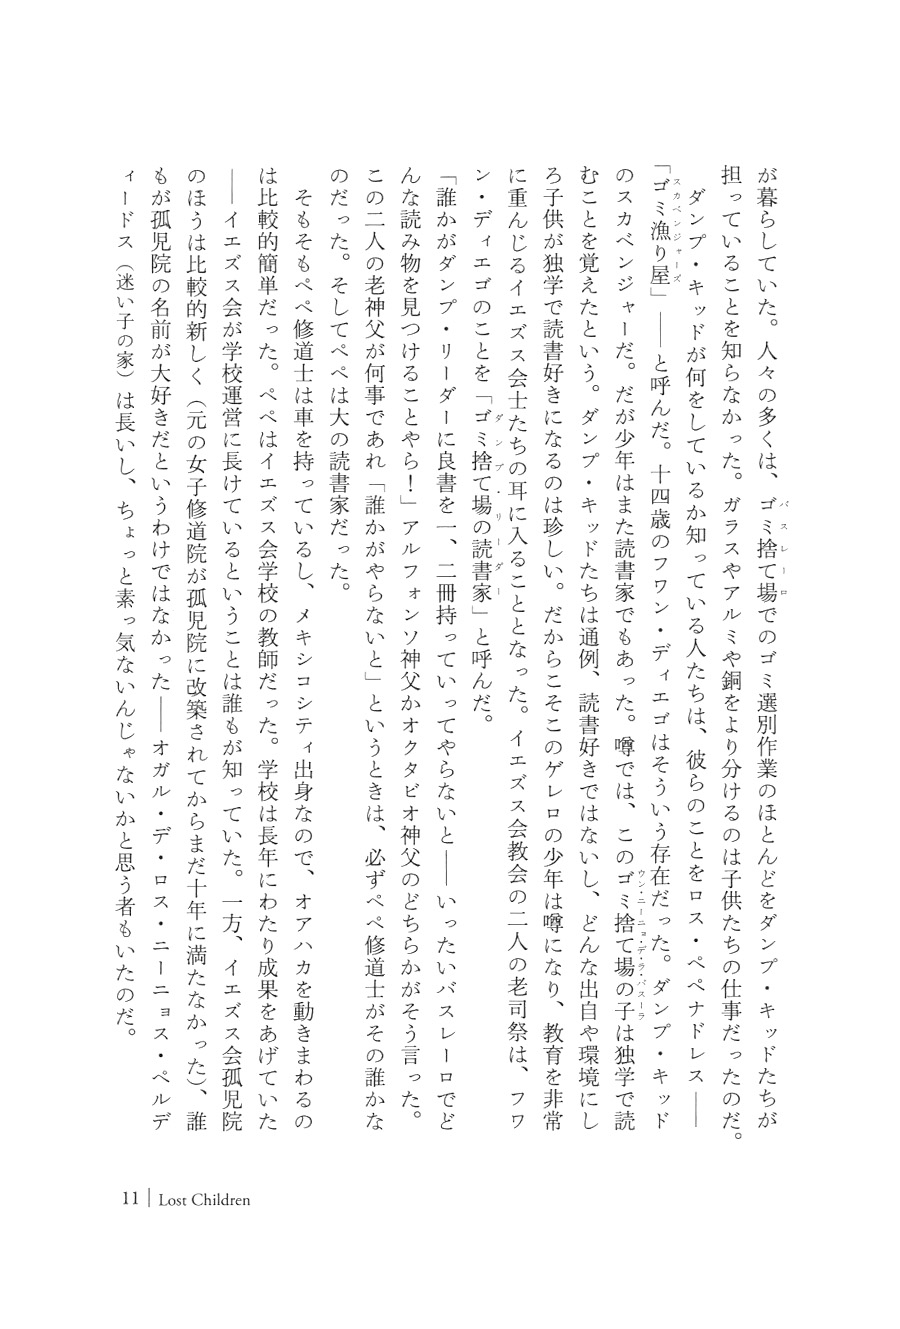 が暮らしていた。人々の多くは、ゴミ捨て場でのゴミ選別作業のほとんどをダンプ・キッドたちが
バスレーロ
担っていることを知らなかった。ガラスやアルミや銅をより分けるのは子供たちの仕事だったのだ。
ダンプ・キッドが何をしているか知っている人たちは、彼らのことをロス・ペペナドレス――
「ゴミ漁り屋」――と呼んだ。十四歳のフワン・ディエゴはそういう存在だった。ダンプ・キッド
スカベンジャーズ
のスカベンジャーだ。だが少年はまた読書家でもあった。噂では、このゴミ捨て場の子は独学で読
ウン・ニーニョ・デ・ラ・バスーラ
むことを覚えたという。ダンプ・キッドたちは通例、読書好きではないし、どんな出自や環境にし
ろ子供が独学で読書好きになるのは珍しい。だからこそこのゲレロの少年は噂になり、教育を非常
に重んじるイエズス会士たちの耳に入ることとなった。イエズス会教会の二人の老司祭は、フワ
ン・ディエゴのことを「ゴミ捨て場の読書家」と呼んだ。
ダンプ・リーダー
「誰かがダンプ・リーダーに良書を一、二冊持っていってやらないと――いったいバスレーロでど
んな読み物を見つけることやら！」アルフォンソ神父かオクタビオ神父のどちらかがそう言った。
この二人の老神父が何事であれ「誰かがやらないと」というときは、必ずペペ修道士がその誰かな
のだった。そしてペペは大の読書家だった。
そもそもペペ修道士は車を持っているし、メキシコシティ出身なので、オアハカを動きまわるの
は比較的簡単だった。ペペはイエズス会学校の教師だった。学校は長年にわたり成果をあげていた
――イエズス会が学校運営に長けているということは誰もが知っていた。一方、イエズス会孤児院
のほうは比較的新しく（元の女子修道院が孤児院に改築されてからまだ十年に満たなかった）、誰
もが孤児院の名前が大好きだというわけではなかった――オガル・デ・ロス・ニーニョス・ペルデ
ィードス（迷い子の家）は長いし、ちょっと素っ気ないんじゃないかと思う者もいたのだ。
11 | Lost Children